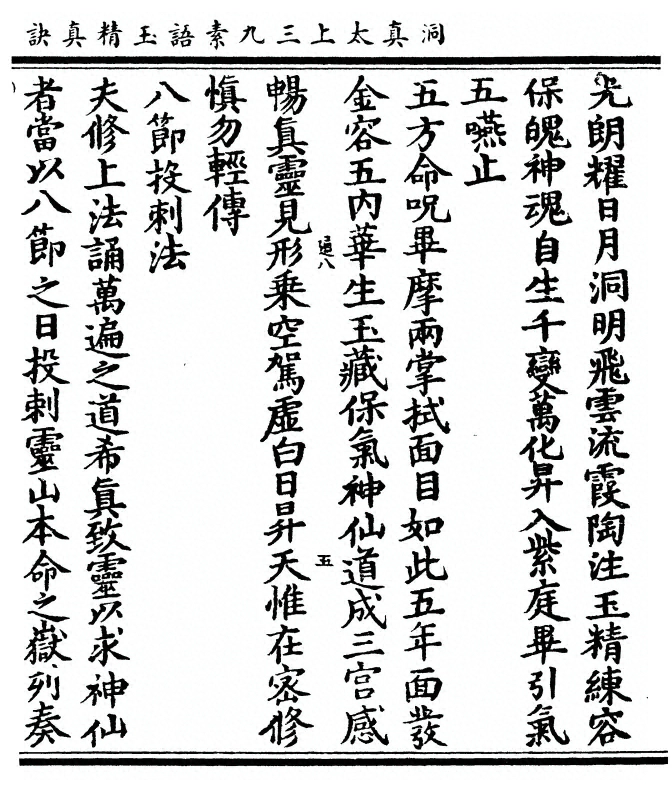 洞真太上三九素語玉精真訣
光朗耀日月洞明飛雲流霞陶注玉精練容
保魄神魂自生千變萬化昇入紫庭畢引氣
五嚥止
五方命呪畢摩兩掌拭面目如此五年面發
金容五內華生玉藏保氣神仙道成三宮感
暢真靈見形乗空駕虛白日昇天惟在宻修
慎勿輕傳
八節投刺法
夫修上法誦萬遍之道希真致靈以求神仙
者當以八節之日投刺靈山本命之嶽列奏
五